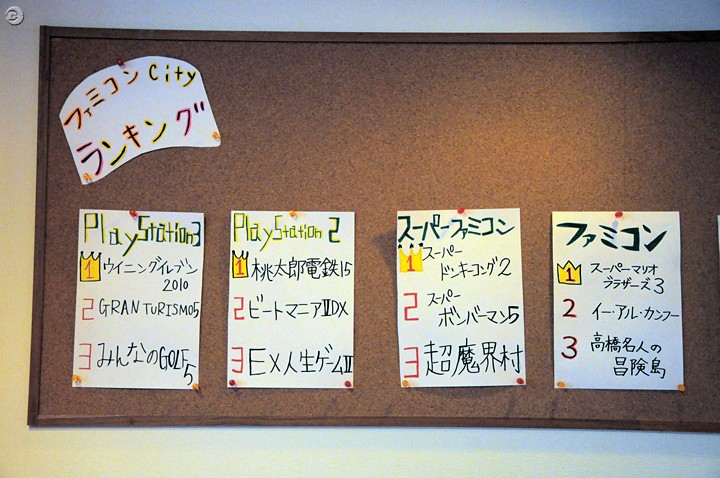 ファミコンCity
ランキング
PlayStation3
1 ウイニングイレブン
2010
2 GRAN TURISMO5
3 みんなのGOLF
5
PlayStation 2
1 桃太郎電鉄15
2 ビートマニアⅡDX
3 EX人生ゲームⅡ
スーパーファミコン
1 スーパー
ドンキーコング2
2 スーパー
ボンバーマン5
3 超魔界村
ファミコン
1 スーパーマリオ
ブラザーズ3
2 イー・アル・カンフー
3 高橋名人の
冒険島